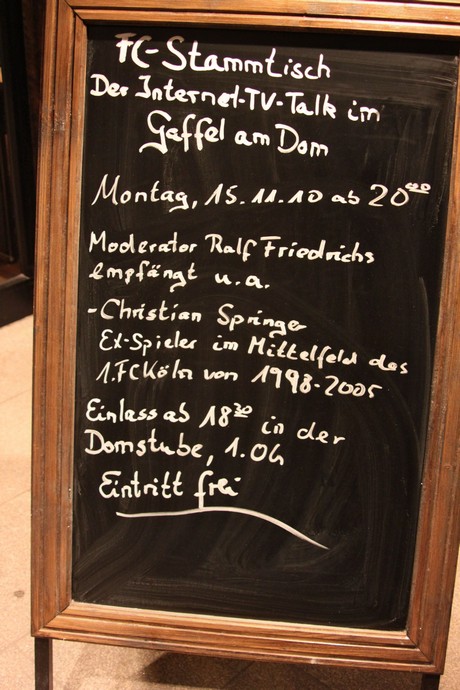 FC-Stammtisch
Der Internet-TV-Talk im
Gaffel am Dom
Montag, 15.11.10 ab 20⁰⁰
Moderator Ralf Friedrichs
empfängt u.a.
-Christian Springer
Ex-Spieler im Mittelfeld des
1.FC Köln von 1998-2005
Einlass ab 18³⁰ in der
Domstube, 1.OG
Eintritt frei